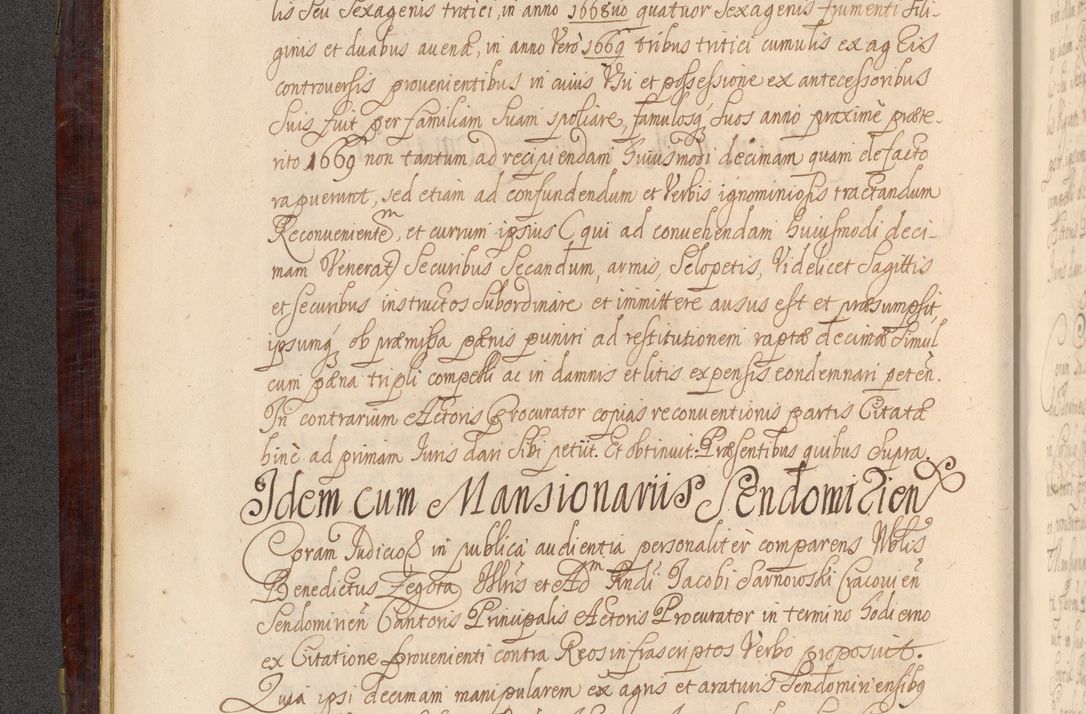 lis seu Sexagenis tritici, in anno 1668vo quatuor Sexagenis frumenti Sili-
ginis et duabus avenæ, in anno Vero 1669 tribus tritici cumulis ex agris
controversis provenientibus in cuius Usu et possessione ex antecessoribus
Suis fuit, per familiam Suam spoliare, famulosq; Suos anno proxime præte-
rito 1669 non tantum ad recipiendam Huiusmodi decimam quam de facto
rapuerunt, sed etiam ad confundendum et Verbis ignominiosis tractandum
Reconvenientem, et currum ipsius (qui ad convehendam huiusmodi deci-
mam Venerat) Securibus Secandum, armis, Selopetis, Videlicet Sagittis
et securibus instructos Subordinare et immittere ausus est et præsumpsit,
ipsumq; ob præmissa pænis puniri ad restitutionem raptæ decimæ Simul
cum pæna tripli compelli ac in damnis et litis expensis condemnari peten.
In contrarium Actoris Procurator copias reconventionis partis Citatæ
hinc ad primam Iuris dari Sibi petiit. Et obtinuit. Præsentibus quibus Supra.
Idem cum Mansionariis Sendomirien
Coram Judicioq in publica audientia personaliter comparens Nblis
Benedictus Zegota Illris et Adm Rndi Jacobi Sarnowski Cracovien
Sendomirien Cantoris Principalis Actoris Procurator in termino hodierno
ex Citatione provenienti contra Reos infrascriptos Verbo proposuit.
Quia ipsi decimam manipularem ex agris et araturis Sendomiriensibq